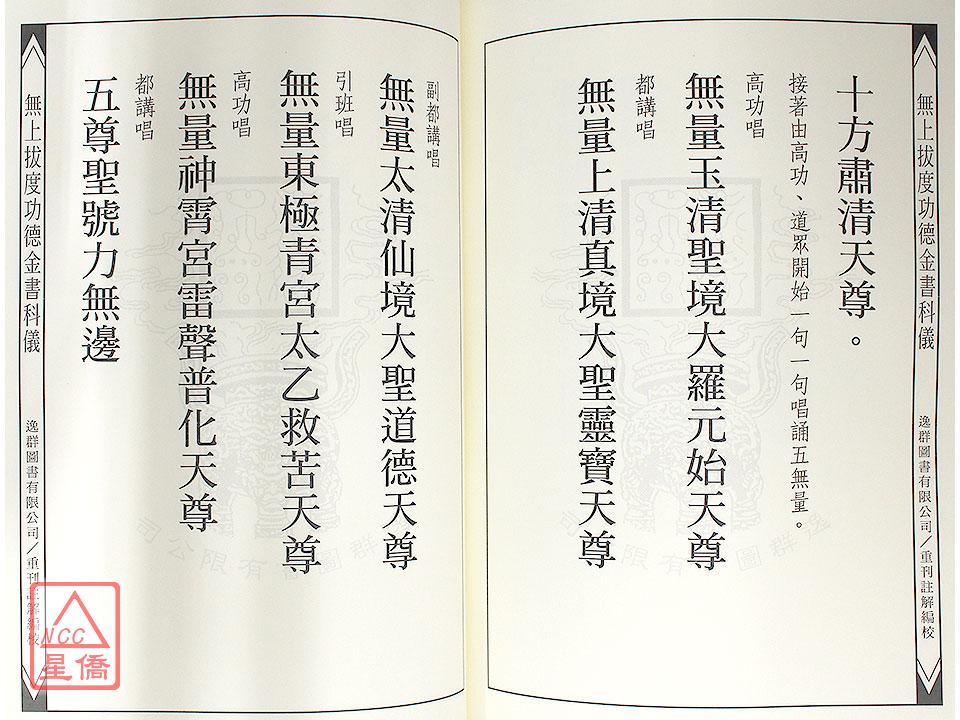 無上拔度功德金書科儀
逸群圖書有限公司／重刊註解編校
十方肅清天尊。
接著由高功、道眾開始一句一句唱誦五無量。
高功唱
無量玉清聖境大羅元始天尊
都講唱
無量上清真境大聖靈寶天尊
副都講唱
無量太清仙境大聖道德天尊
引班唱
無量東極青宮太乙救苦天尊
高功唱
無量神霄宮雷聲普化天尊
都講唱
五尊聖號力無邊
無上拔度功德金書科儀
逸群圖書有限公司／重刊註解編校
NCC
星僑